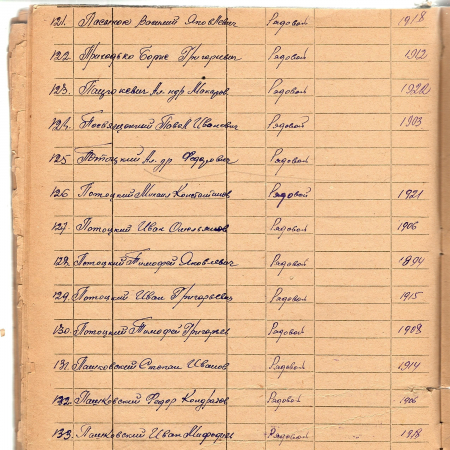 121. Пасынок Василий Яковлевич Рядовой 1918
122. Приходько Борис Григориевич Рядовой 1912
123. Ал-ндр Макаров. Рядовой
124. Посвященний Павел Иванович Рядовой 1903
125 Потоцкий Ал-др Федорович Рядовой
126 Потоцкий Михаил Константинов Рядовой 1921
127 Потоцкий Иван Рядовой 1906
128. Потоцкий Тимофей Яковлевич Рядовой 1894
129. Потоцкий Иван Григорьевич Рядовой 1915
130. Потоцкий Тимофей Григорьев Рядовой 1908
131. Пашковский Степан Иванов Рядовой 1914
132. Пашковский Федор Кондратов Рядовой 1906
133. Пашковский Иван Рядовой 1918